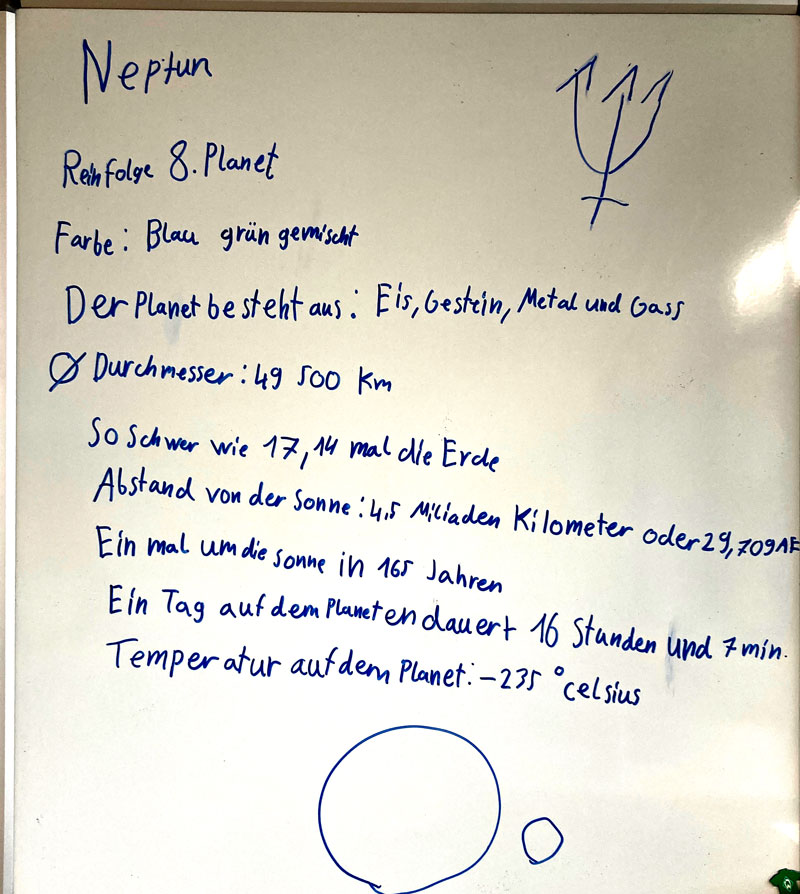 Neptun
Reinfolge 8. Planet
Farbe: Blau grün gemischt
Der Planet besteht aus: Eis, Gestein, Metal und Gass
Ø Durchmesser: 49 500 Km
So schwer wie 17,14 mal die Erde
Abstand von der Sonne: 4,5 Miliaden Kilometer oder 29,709 AE
Ein mal um die Sonne in 165 Jahren
Ein Tag auf dem Planeten dauert 16 Stunden und 7 min.
Temperatur auf dem Planet: -235 °celsius